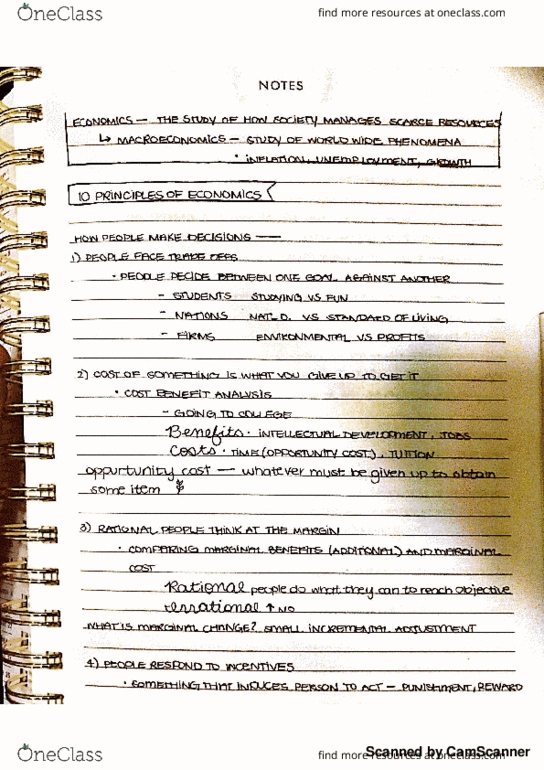 OneClass
find more resources at oneclass.com
NOTES
ECONOMICS — THE STUDY OF HOW SOCIETY MANAGES SCARCE RESOURCES
↳ MACROECONOMICS — STUDY OF WORLD WIDE PHENOMENA
• INFLATION, UNEMPLOYMENT, GROWTH
10 PRINCIPLES OF ECONOMICS
HOW PEOPLE MAKE DECISIONS —
1) PEOPLE FACE TRADE OFFS
• PEOPLE DECIDE BETWEEN ONE GOAL AGAINST ANOTHER
- STUDENTS STUDYING VS FUN
- NATIONS NAT'L D. VS STANDARD OF LIVING
- FIRMS ENVIRONMENTAL VS PROFITS
2) COST OF SOMETHING IS WHAT YOU GIVE UP TO GET IT
• COST BENEFIT ANALYSIS
- GOING TO COLLEGE
Benefits • INTELLECTUAL DEVELOPMENT, JOBS
Costs • TIME (OPPORTUNITY COST), TUITION
oppurtunity cost — whatever must be given up to obtain
some item
3) RATIONAL PEOPLE THINK AT THE MARGIN
• COMPARING MARGINAL BENEFITS (ADDITIONAL) AND MARGINAL
COST
Rational people do what they can to reach objective
irrational ↑ NO
WHAT IS MARGINAL CHANGE? SMALL INCREMENTAL ADJUSTMENT
4) PEOPLE RESPOND TO INCENTIVES
• SOMETHING THAT INDUCES PERSON TO ACT — PUNISHMENT, REWARD
OneClass
find more resources at oneclass.com
Scanned by CamScanner